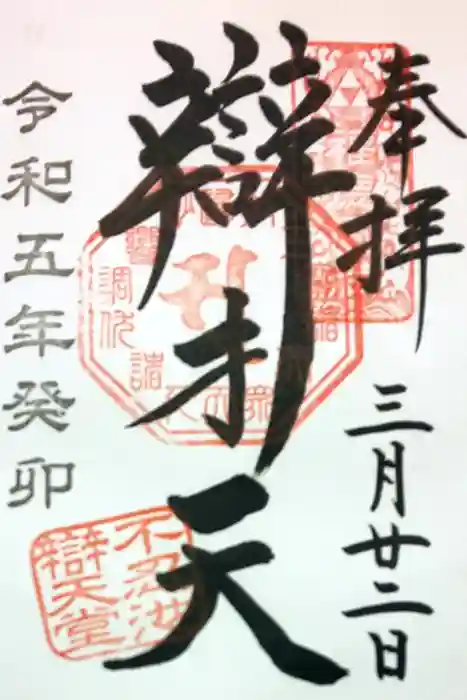 奉拝
三月廿二日
辯才天
令和五年癸卯
不忍池
辯天堂